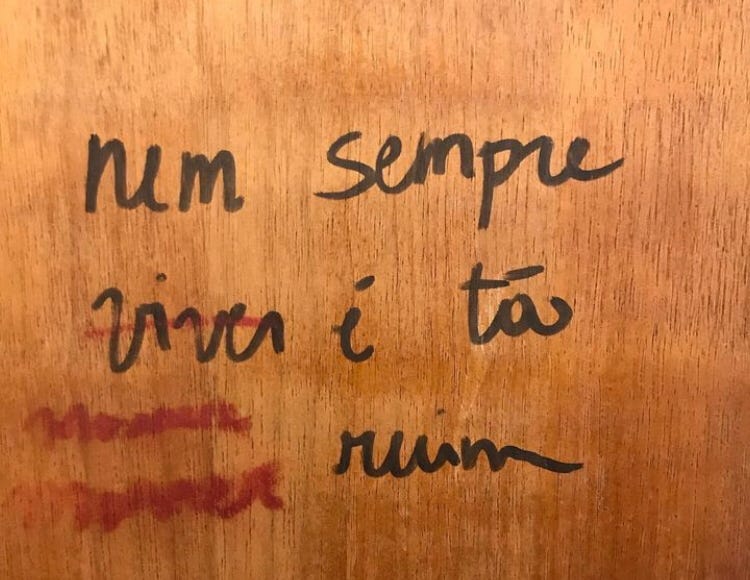 nem sempre
viver é tão
ruim